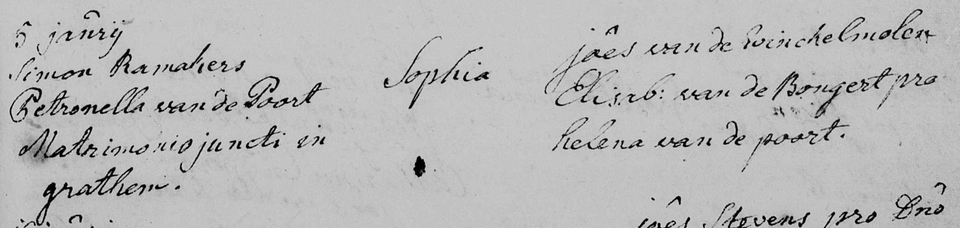 5 janrij
Simon Ramakers
Petronella van de Poort
Matrimonio juncti in
grathem.
Sophia
joês van de Winckelmolen
Elisab: van de Bongert pro
helena van de poort.
joês Stevens pro Dnô